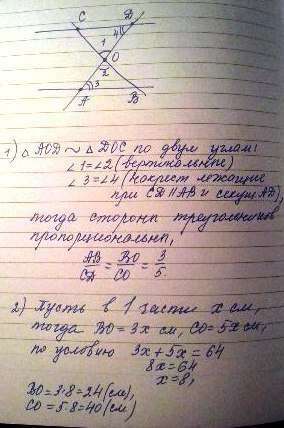 C D
4
1
O
2
3
A B
1) △ AOD ~ △ DOC по двум углам:
∠1=∠2 (вертикальные)
∠3=∠4 (накрест лежащие
при CD || AB и секущ AD),
тогда стороны треугольников
пропорциональны,
AB/CD = BO/CO = 3/5.
2) Пусть в 1 части x см,
тогда BO=3x см, CO=5x см,
по условию 3x+5x=64
8x=64
x=8,
BO=3·8=24(см),
CO=5·8=40(см)